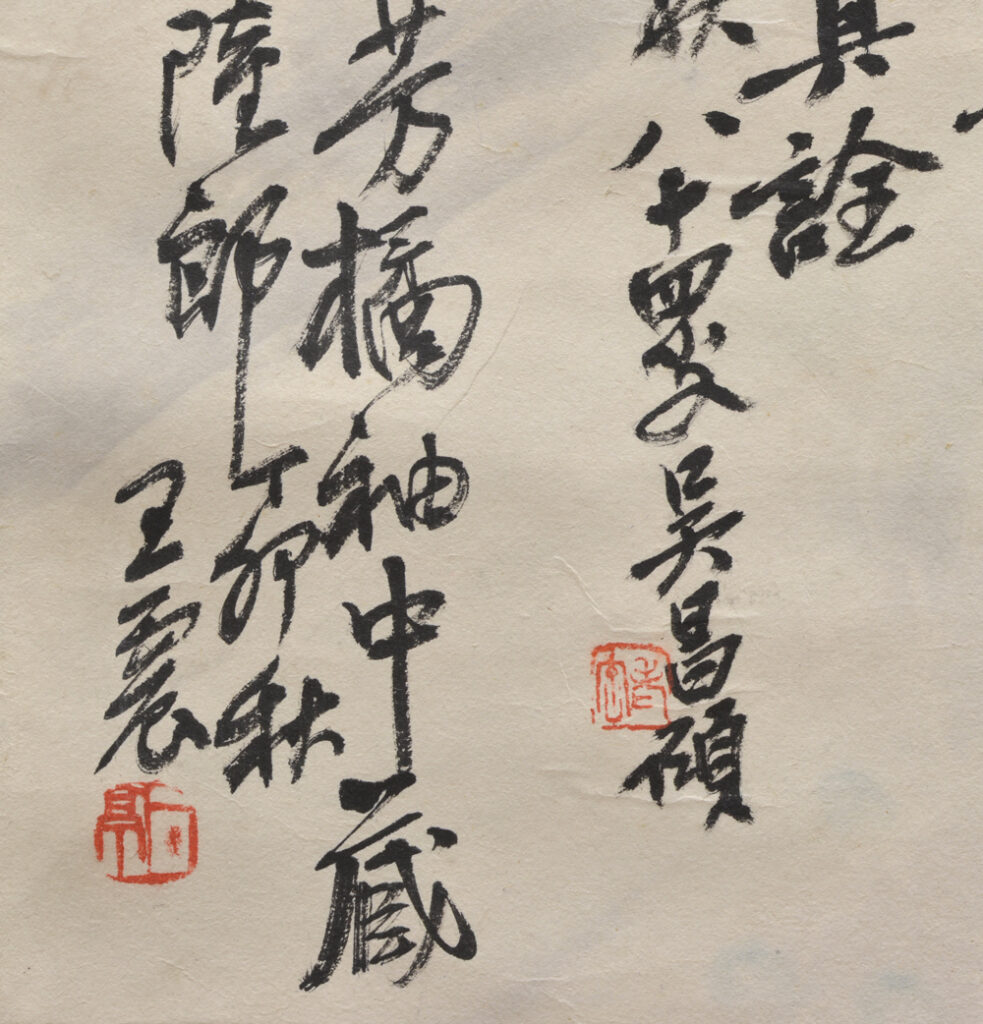 真詮
八十四叟吳昌碩
芳橘袖中藏
陸郎丁卯秋
王震